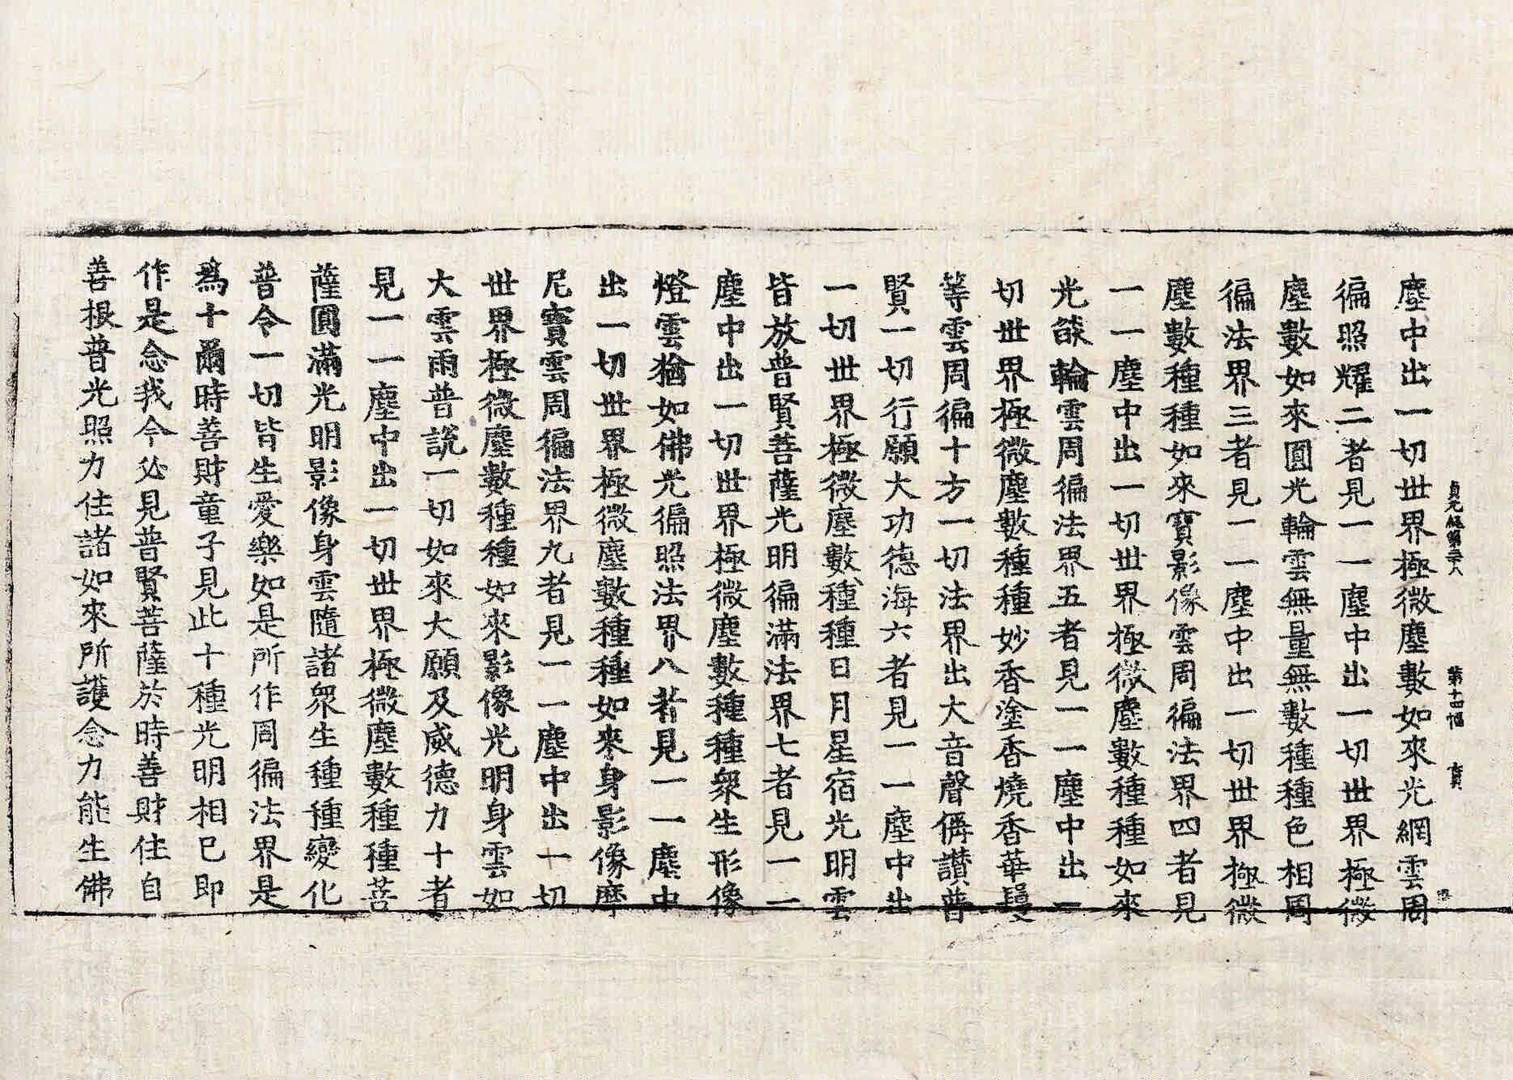 貞元經第三十八 第十四幅
塵中出一切世界極微塵數如來光網雲周
徧照耀二者見一一塵中出一切世界極微
塵數如來圓光輪雲無量無數種種色相周
徧法界三者見一一塵中出一切世界極微
塵數種種如來寶影像雲周徧法界四者見
一一塵中出一切世界極微塵數種種如來
光燄輪雲周徧法界五者見一一塵中出一
切世界極微塵數種種妙香塗香燒香華鬘
等雲周徧十方一切法界出大音聲偁讃普
賢一切行願大功德海六者見一一塵中出
一切世界極微塵數種種日月星宿光明雲
皆放普賢菩薩光明徧滿法界七者見一一
塵中出一切世界極微塵數種種衆生形像
燈雲猶如佛光徧照法界八者見一一塵中
出一切世界極微塵數種種如來身影像摩
尼寶雲周徧法界九者見一一塵中出一切
世界極微塵數種種如來影像光明身雲如
大雲雨普說一切如來大願及威德力十者
見一一塵中出一切世界極微塵數種種菩
薩圓滿光明影像身雲隨諸衆生種種變化
普令一切皆生愛樂如是所作周徧法界是
爲十爾時善財童子見此十種光明相已即
作是念我今必見普賢菩薩於時善財住自
善根普光照力住諸如來所護念力能生佛